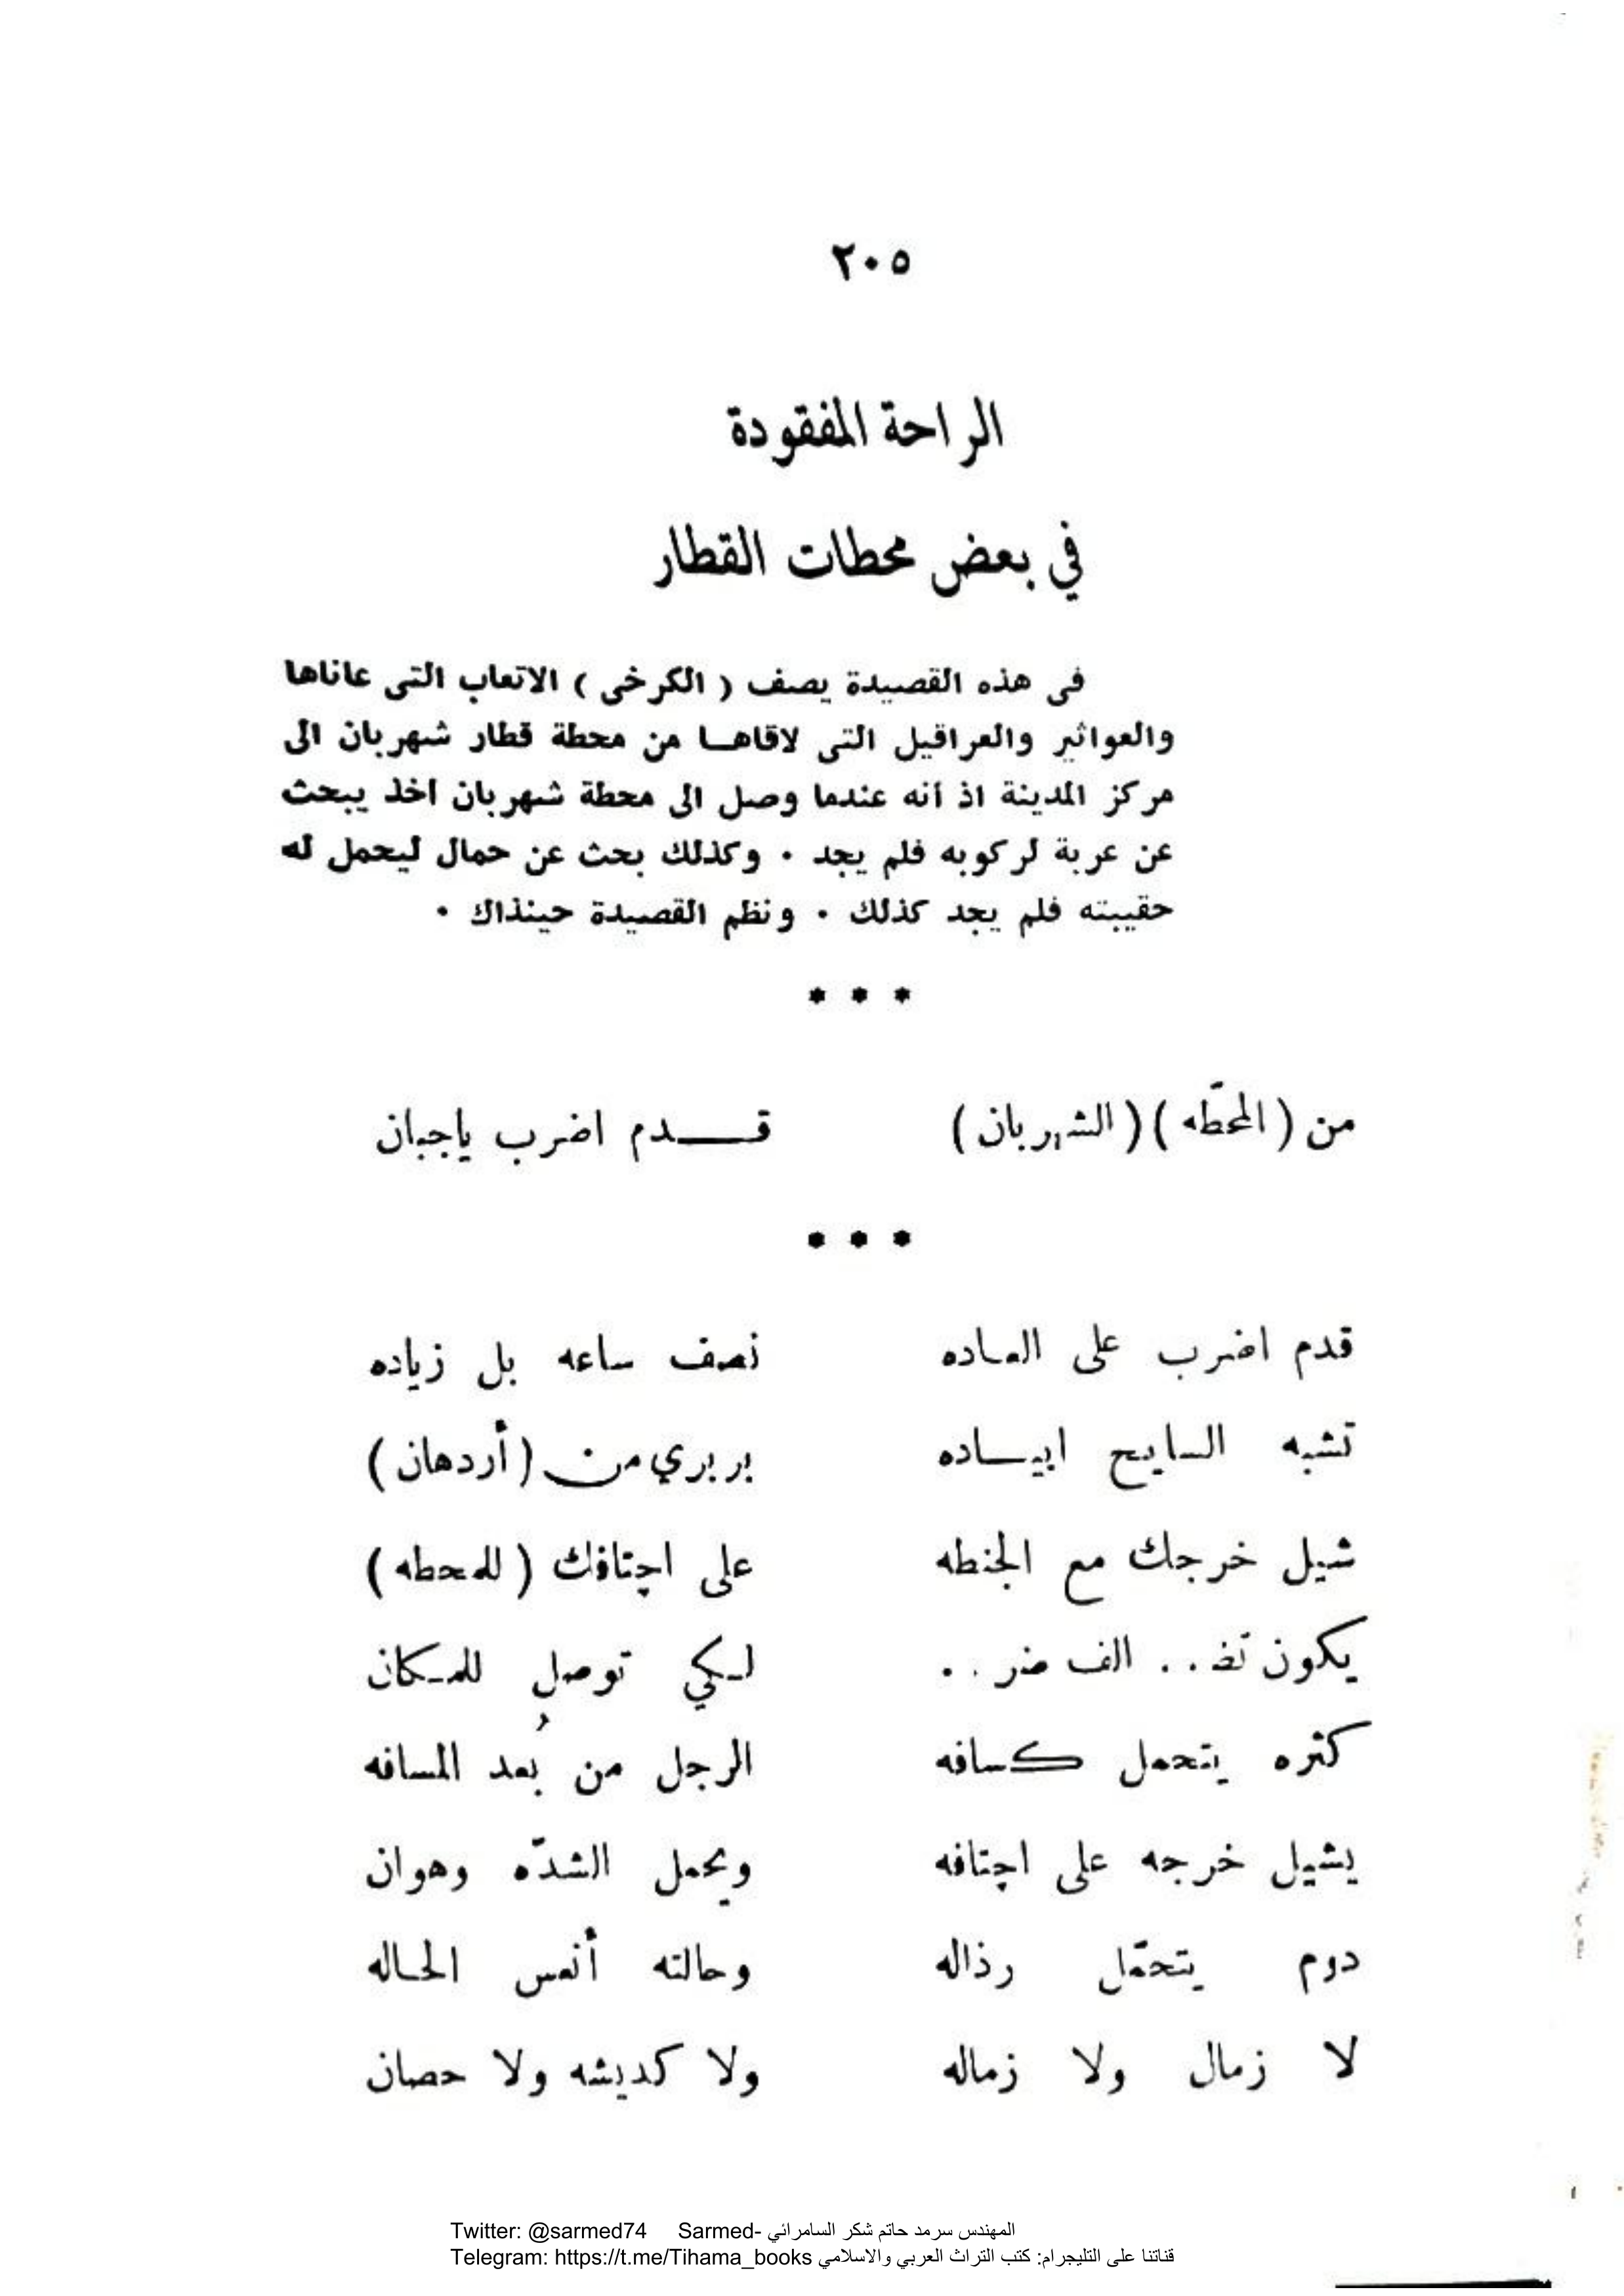 ٢٠٥
الراحة المفقودة
في بعض محطات القطار
في هذه القصيدة يصف ( الكرخي ) الاتعاب التي عاناها
والعواثير والعراقيل التي لاقاهـا من محطة قطار شهربان الى
مركز المدينة اذ أنه عندما وصل الى محطة شهربان اخذ يبحث
عن عربة لركوبه فلم يجد ٠ وكذلك بحث عن حمال ليحمل له
حقيبته فلم يجد كذلك ٠ ونظم القصيدة حينذاك ٠
* * *
من ( المحطّه ) ( الشهربان ) قـــدم اضرب ياجبان
* * *
قدم اضرب على العـاده نصف ساعه بل زياده
تشبه السايح ابيـــاده بربري من ( أردهان )
شيل خرجك مع الجنطه على اچتافك ( للمحطه )
يكون تض . . الف ضر . . لـكي توصل للمـكان
كثره يتحمل كسافه الرجل من بُعد المسافه
يشيل خرجه على اچتافه ويحمل الشدّه وهوان
دوم يتحمّل رذاله وحالته أنعس الحـاله
لا زمال ولا زماله ولا كديشه ولا حصان
Twitter: @sarmed74 Sarmed- المهندس سرمد حاتم شكر السامرائي
Telegram: https://t.me/Tihama_books قناتنا على التليجرام: كتب التراث العربي والاسلامي